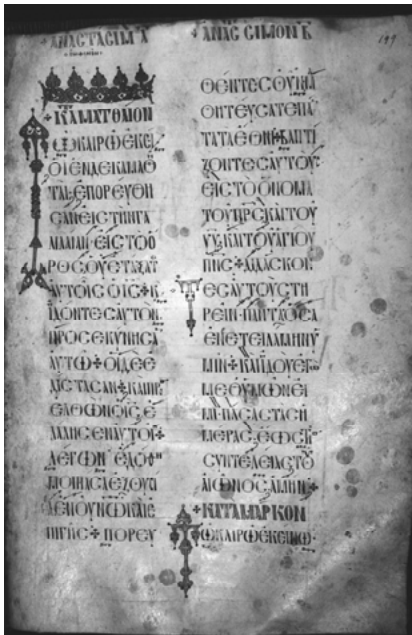 ΑΝΑCΤΑCΙΜ Α
ΩΚΑΙΡΩΕΚΕΙ
ΟΙΕΝΔΕΚΑΜΑΘ
ΤΑΙΕΠΟΡΕΥΘΗ
CΑΝΕΙCΤΗΝΓΑ
ΛΙΛΑΙΑΝΕΙCΤΟΟ
ΡΟCΟΥΕΤΑΞΑΤ
ΑΥΤΟΙCΟΙC+Κ
ΙΔΟΝΤΕCΑΥΤΟΝ
ΠΡΟCΕΚΥΝΗCΑ
ΑΥΤΩ+ΟΙΔΕΕ
ΔΙCΤΑCΑΝ+ΚΑΙΠΡ
ΕΛΘΩΝΟΙCΕ
ΛΑΛΗCΕΝΑΥΤΟΙ+
ΛΕΓΩΝΕΔΟΘΗ
ΜΟΙΠΑCΑΕΞΟΥCΙ
ΑΕΝΟΥΝΩΚΑΙΕ
ΠΙΓΗC+ΠΟΡΕΥ
ΘΕΝΤΕCΟΥΝΜΑ
ΘΗΤΕΥCΑΤΕΠΑ
ΤΑΤΑΕΘΝΗ+ΒΑΠΤΙ
ΖΟΝΤΕCΑΥΤΟΥC
ΕΙCΤΟΟΝΟΜΑ
ΤΟΥΠΡCΚΑΙΤΟΥ
ΥΥΚΑΙΤΟΥΑΓΙΟΥ
ΠΝC+ΔΙΔΑCΚΟΝ
ΤΕCΑΥΤΟΥCΤΗ
ΡΕΙΝΠΑΝΤΑΟCΑ
ΕΝΕΤΕΙΛΑΜΗΝΥ
ΜΙΝ+ΚΑΙΙΔΟΥΕΓΩ
ΜΕΘΥΜΩΝΕΙ
ΜΙΠΑCΑCΤΑCΗ
ΜΕΡΑCΕΩCΤΗ
CΥΝΤΕΛΕΙΑCΤΟ
ΑΙΩΝΟCΑΜΗΝ+
+ΚΑΤΑΜΑΡΚΟΝ
ΩΚΑΙΡΩΕΚΕΙΝΩ